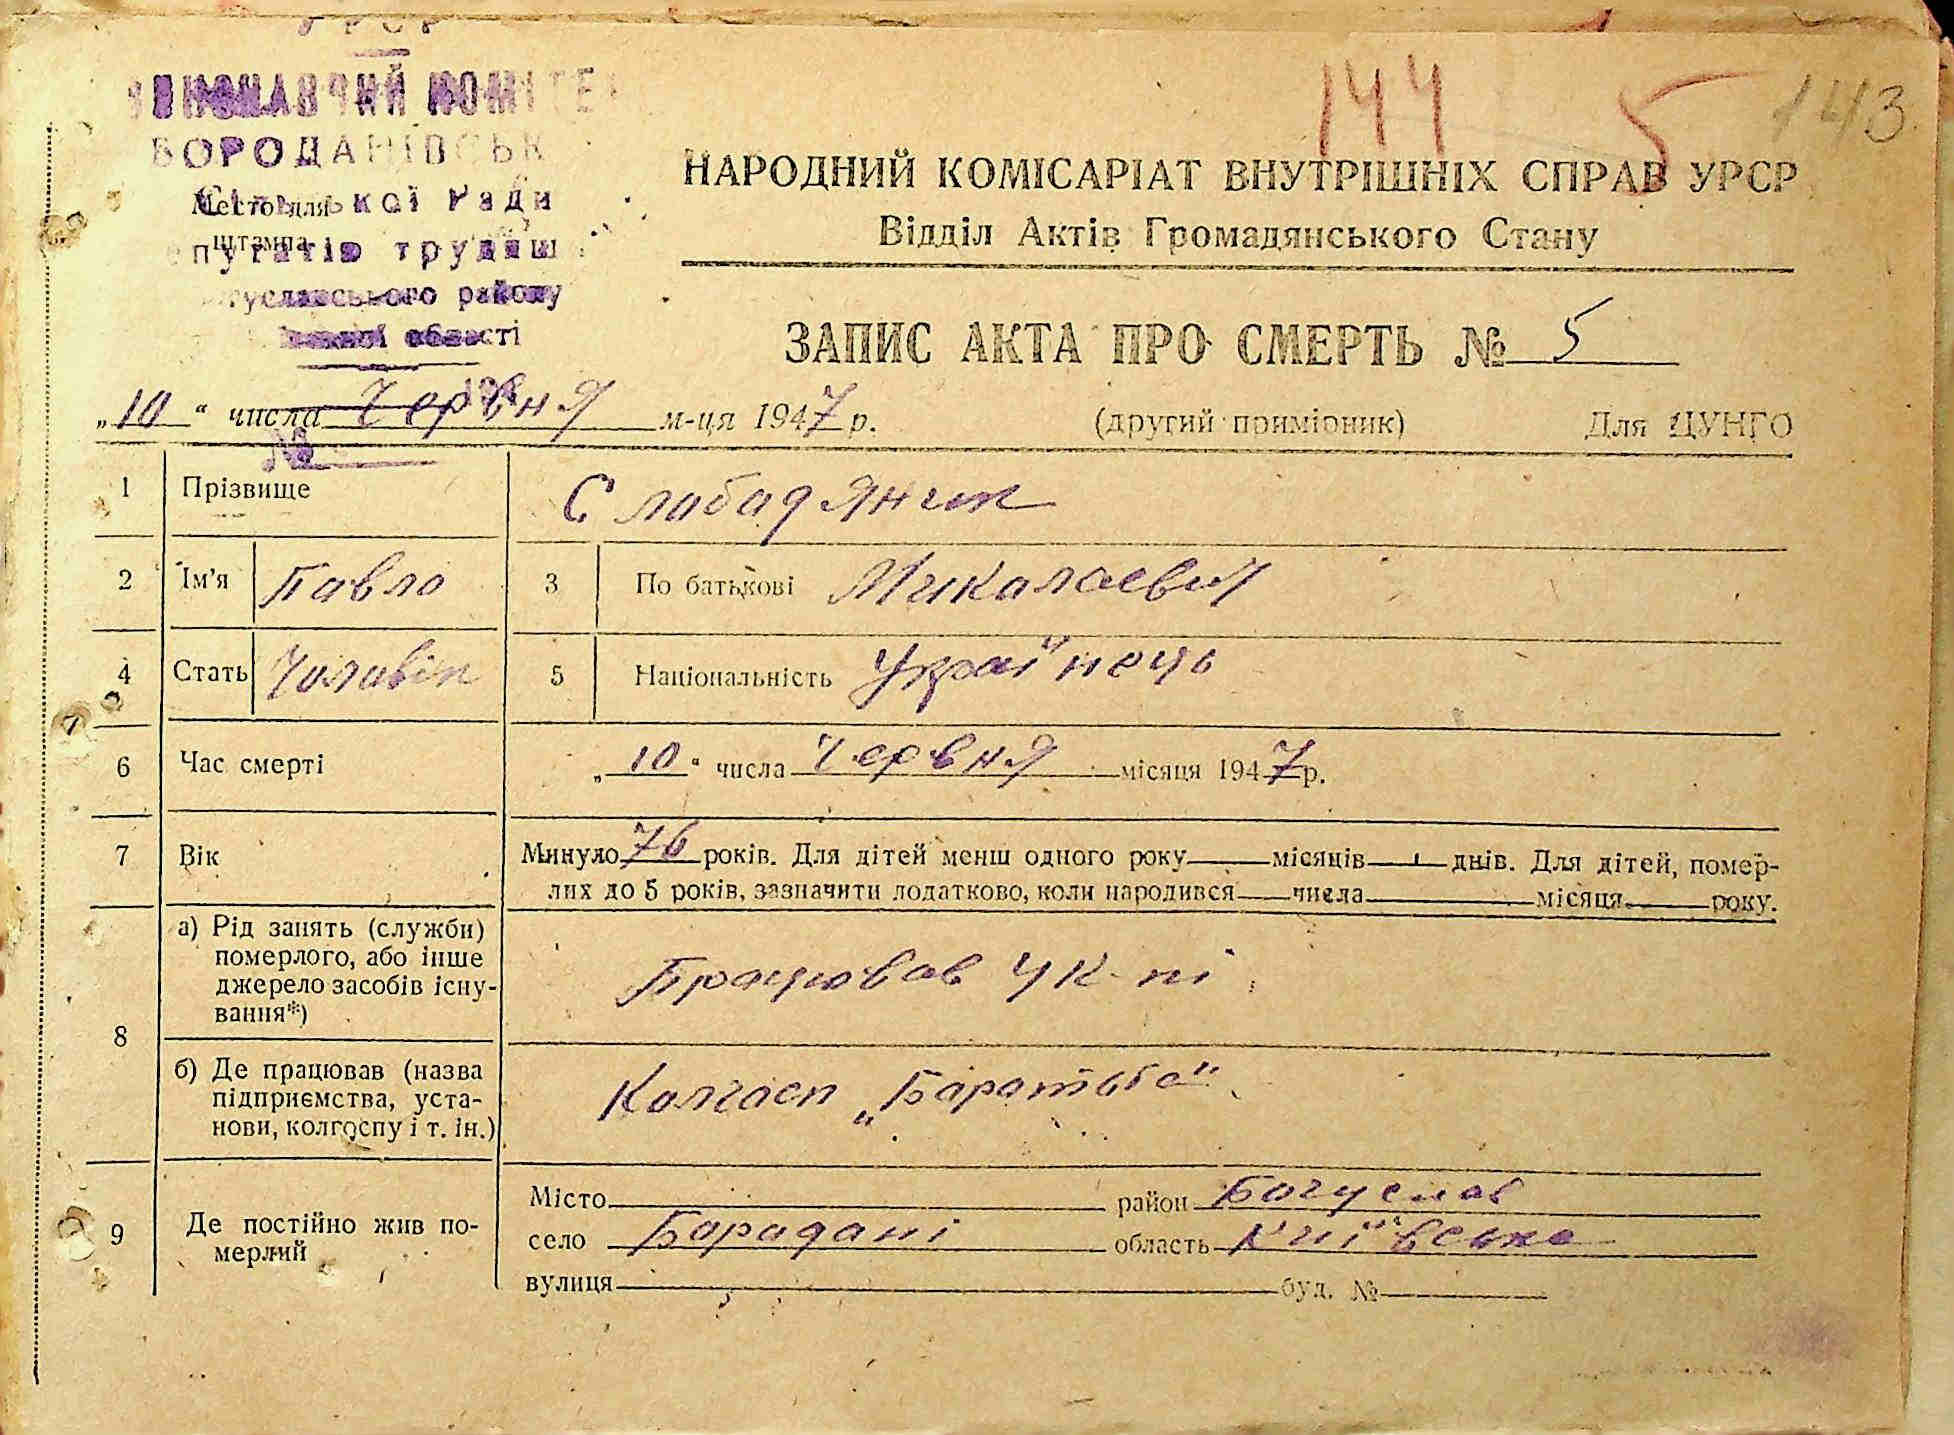 УРСР
ВИКОНАВЧИЙ КОМІТЕ
БОРОДАНІВСЬК
Сільської Ради
Место для
штампа
епутатів трудящ
гуславського району
області
144 5 143
НАРОДНИЙ КОМІСАРІАТ ВНУТРІШНІХ СПРАВ УРСР
Відділ Актів Громадянського Стану
ЗАПИС АКТА ПРО СМЕРТЬ № 5
„10“ числа Червня м-ця 1947 р. (другий примірник) Для ЦУНГО
№
1 Прізвище Слабадяник
2 Ім'я Павло 3 По батькові Микалаевич
4 Стать Чоловік 5 Національність Українець
6 Час смерті „10“ числа Червня місяця 1947 р.
7 Вік Минуло 76 років. Для дітей менш одного року місяців днів. Для дітей, помер-
лих до 5 років, зазначити додатково, коли народився числа місяця року.
8 а) Рід занять (служби)
померлого, або інше
джерело засобів існу-
вання*)
Працював у к-пі
б) Де працював (назва
підприємства, уста-
нови, колгоспу і т. ін.)
Калгосп „Баратьба“
9 Де постійно жив по-
мерлий
Місто район Богуслав
село Барадані область Київська
вулиця буд. №